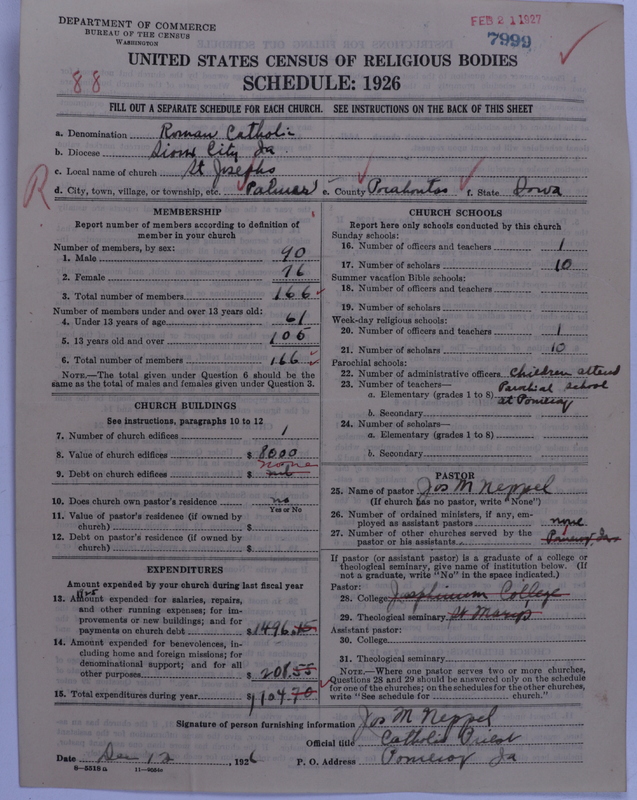 DEPARTMENT OF COMMERCE
BUREAU OF THE CENSUS
WASHINGTON
FEB 21 1927
7999
88
UNITED STATES CENSUS OF RELIGIOUS BODIES
SCHEDULE: 1926
FILL OUT A SEPARATE SCHEDULE FOR EACH CHURCH. SEE INSTRUCTIONS ON THE BACK OF THIS SHEET
a. Denomination Roman Catholic
b. Diocese Sioux City Ia
c. Local name of church St Josephs
R
d. City, town, village, or township, etc. Palmer e. County Pocahontas f. State Iowa
MEMBERSHIP
Report number of members according to definition of
member in your church
Number of members, by sex:
1. Male 90
2. Female 76
3. Total number of members 166
Number of members under and over 13 years old:
4. Under 13 years of age 61
5. 13 years old and over 105
6. Total number of members 166
NOTE.—The total given under Question 6 should be
same as the total of males and females given under Question 3.
CHURCH BUILDINGS
See instructions, paragraphs 10 to 12
7. Number of church edifices 1
8. Value of church edifices $ 8000
none
9. Debt on church edifices $
10. Does church own pastor's residence no
Yes or No
11. Value of pastor's residence (if owned by
church) $
12. Debt on pastor's residence (if owned by
church) $
EXPENDITURES
Amount expended by your church during last fiscal year
13. Amount expended for salaries, repairs,
and other running expenses; for im-
provements or new buildings; and for
payments on church debt $1496.15
14. Amount expended for benevolences, in-
cluding home and foreign missions; for
denominational support; and for all
other purposes $ 208.55
15. Total expenditures during year $1704.70
CHURCH SCHOOLS
Report here only schools conducted by this church
Sunday schools:
16. Number of officers and teachers 1
17. Number of scholars 10
Summer vacation Bible schools:
18. Number of officers and teachers
19. Number of scholars
Week-day religious schools:
20. Number of officers and teachers 1
21. Number of scholars 10
Parochial schools:
22. Number of administrative officers Children attend
23. Number of teachers— Parochial School
a. Elementary (grades 1 to 8) at Pomeroy
b. Secondary
24. Number of scholars—
a. Elementary (grades 1 to 8)
b. Secondary
PASTOR
25. Name of pastor Jos M Neppel
(If church has no pastor, write "None")
26. Number of ordained ministers, if any, em-
ployed as assistant pastors none
27. Number of other churches served by the
pastor or his assistants Pomeroy, Iowa
If pastor (or assistant pastor) is a graduate of a college or
theological seminary, give name of institution below. (If
not a graduate, write "No" in the space indicated.)
Pastor:
28. College Josephinum College
29. Theological seminary St Marys
Assistant pastor:
30. College
31. Theological seminary
NOTE.—Where one pastor serves two or more churches,
Questions 28 and 29 should be answered only on the schedule
for one of the churches; on the schedules for the other churches,
write "See schedule for church."
Signature of person furnishing information Jos M Neppel
Official title Catholic Priest
Date Dec 12, 1926 P. O. Address Pomeroy Ia
8—5518a 11—9055